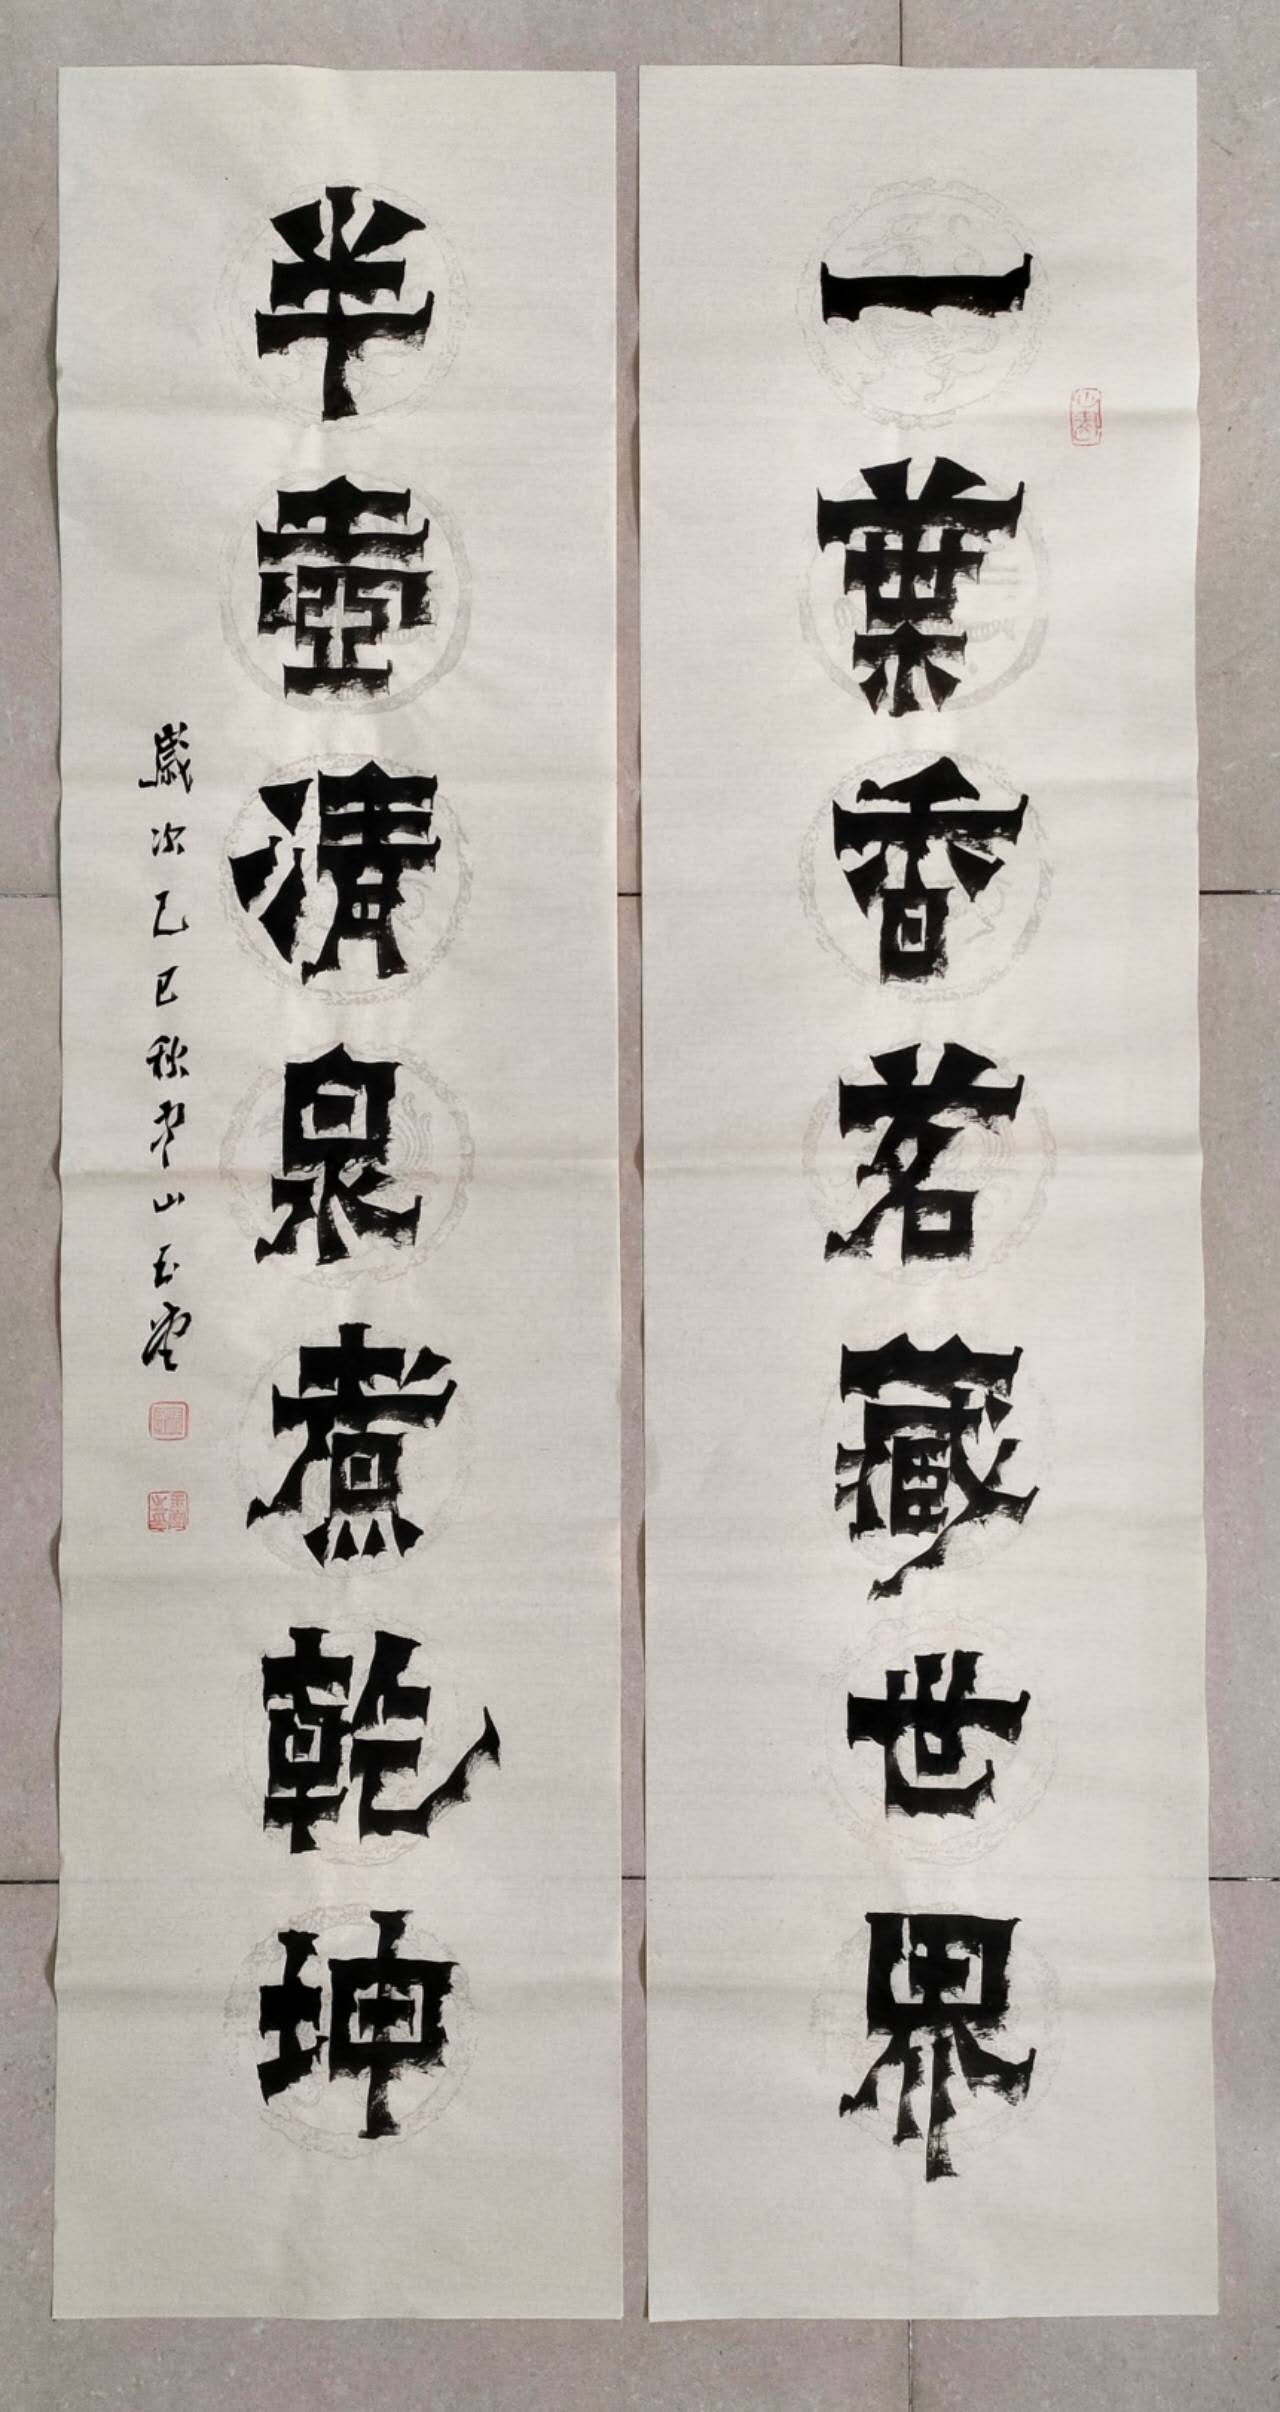 一葉香茗藏世界
半壺清泉煮乾坤
歲次乙巳秋 山玉堂